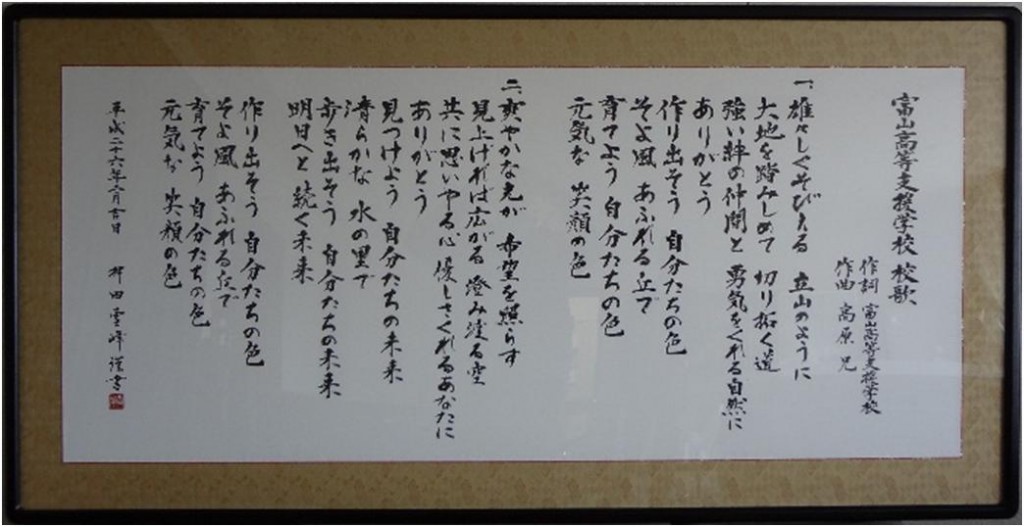 富山高等支援学校 校歌
作詞 富山高等支援学校
作曲 高原 兄
一、雄々しくそびえる 立山のように
大地を踏みしめて 切り拓く道
強い絆の仲間と 勇気をくれる自然に
ありがとう
作り出そう 自分たちの色
そよ風 あふれる丘で
育てよう 自分たちの色
元気な 笑顔の色
二、爽やかな光が 希望を照らす
見上げれば広がる 澄み渡る空
共に思いやる心 優しさくれるあなたに
ありがとう
見つけよう 自分たちの未来
清らかな 水の里で
歩き出そう 自分たちの未来
明日へと 続く未来
作り出そう 自分たちの色
そよ風 あふれる丘で
育てよう 自分たちの色
元気な 笑顔の色
平成二十六年 月吉日 田雲峰謹書